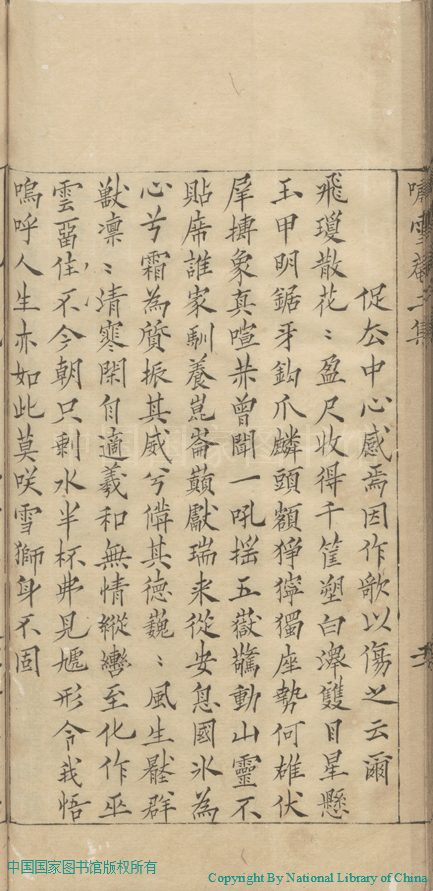 嘯雪菴二集
促坐中心感焉因作歌以傷之云爾
飛瓊散花〻盈尺收得千筐塑白澤雙目星懸
玉甲明鋸牙鈎爪麟頭額猙獰獨座勢何雄伏
犀摶象真喧赫曾聞一吼搖五嶽驚動山靈不
貼席誰家馴養崑崙巔獻瑞来從安息國氷為
心兮霜為質振其威兮備其德巍〻風生讋群
獣凛〻清寒閑自適羲和無情縱轡至化作巫
雲畱住不今朝只剩水半杯弗見尪形令我悟
嗚呼人生亦如此莫咲雪獅身不固
中国国家图书馆版权所有
Copyright By National Library of China